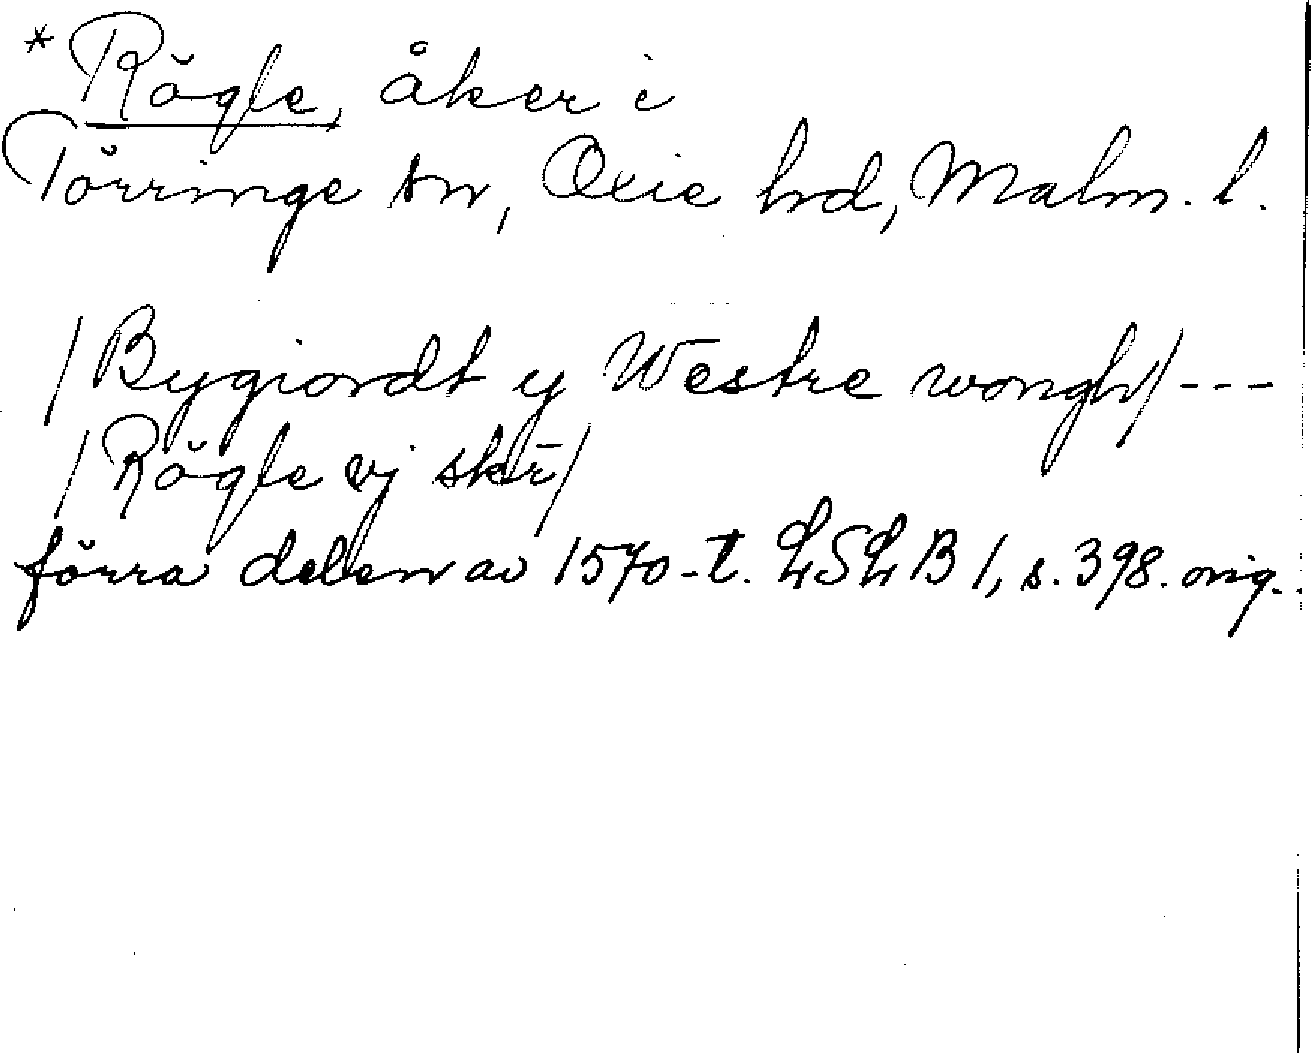 * Rögle, åker i
Törringe sn, Oxie hd, Malm. l.
/Bygiordt y Westre wongh/ ---
/Rögle vj skr̄/
förra delen av 1570-t. LSLB 1, s. 398. orig.